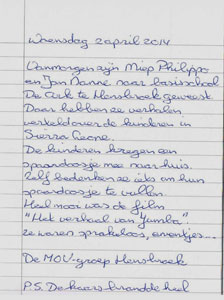 Woensdag 2 april 2014
Vanmorgen zijn Miep Philippo
en Jan Nanne naar basisschool
De Ark te Hensbroek geweest
Daar hebben ze verhalen
verteld over de kinderen in
Sierra Leone.
De kinderen kregen een
spaardoosje mee naar huis.
Zelf bedenken ze iets om hun
spaardoosje te vullen.
Heel mooi was de film
"Het verhaal van Yumba"
ze waren sprakeloos, eventjes...
De MOV-groep Hensbroek
P.S. De kaars brandde heel